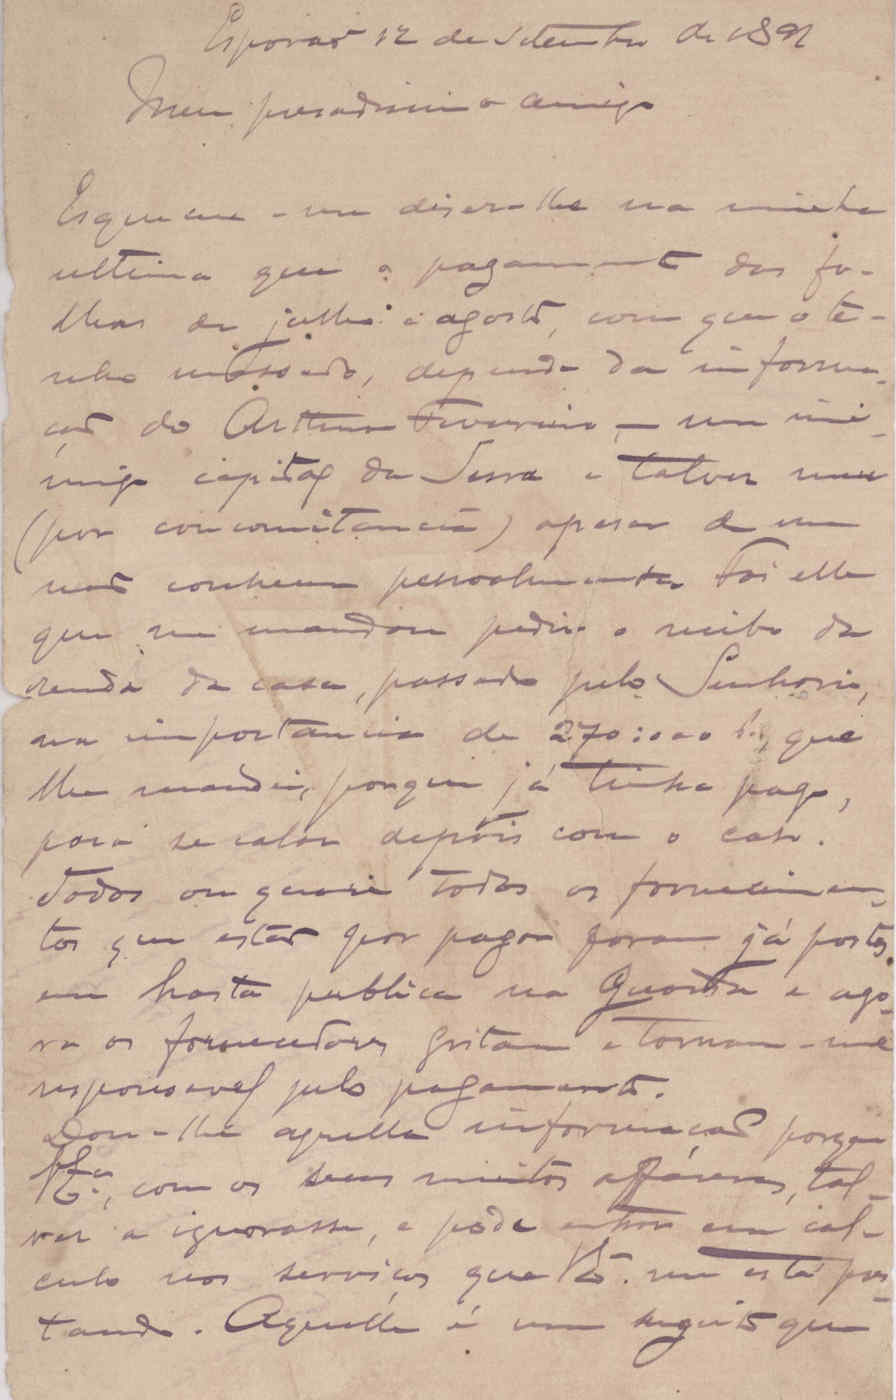 12 de Setembro de 1891
Meu presadissimo amigo
Esqueceu-me dizer-lhe na minha
ultima que o pagamento das fo-
lhas de julho e agosto, com que o te-
nho massado, depende da informa-
ção do Arthur Fevereiro, — um ini-
migo capital da Serra e talvez meu
(por concomitancia) apesar de me
não conhecer pessoalmente. Foi elle
que me mandou pedir o recibo da
renda da casa, passado pelo Senhorio,
na importancia de 270:000 que
lhe mandei, porque já tinha pago,
para se calar depois com o caso.
Todos ou quasi todos os fornecimen-
tos que estão por pagar foram já postos
em hasta publica na Guarda e ago-
ra os fornecedores gritam e tornam-me
responsavel pelo pagamento.
Dou-lhe aquella informação porque
VEª, com os seus muitos affáseres, tal-
vez a ignorasse, e póde entrar em cal-
culo nos serviços que VE. me está pres-
tando. Aquelle é um sugeito que